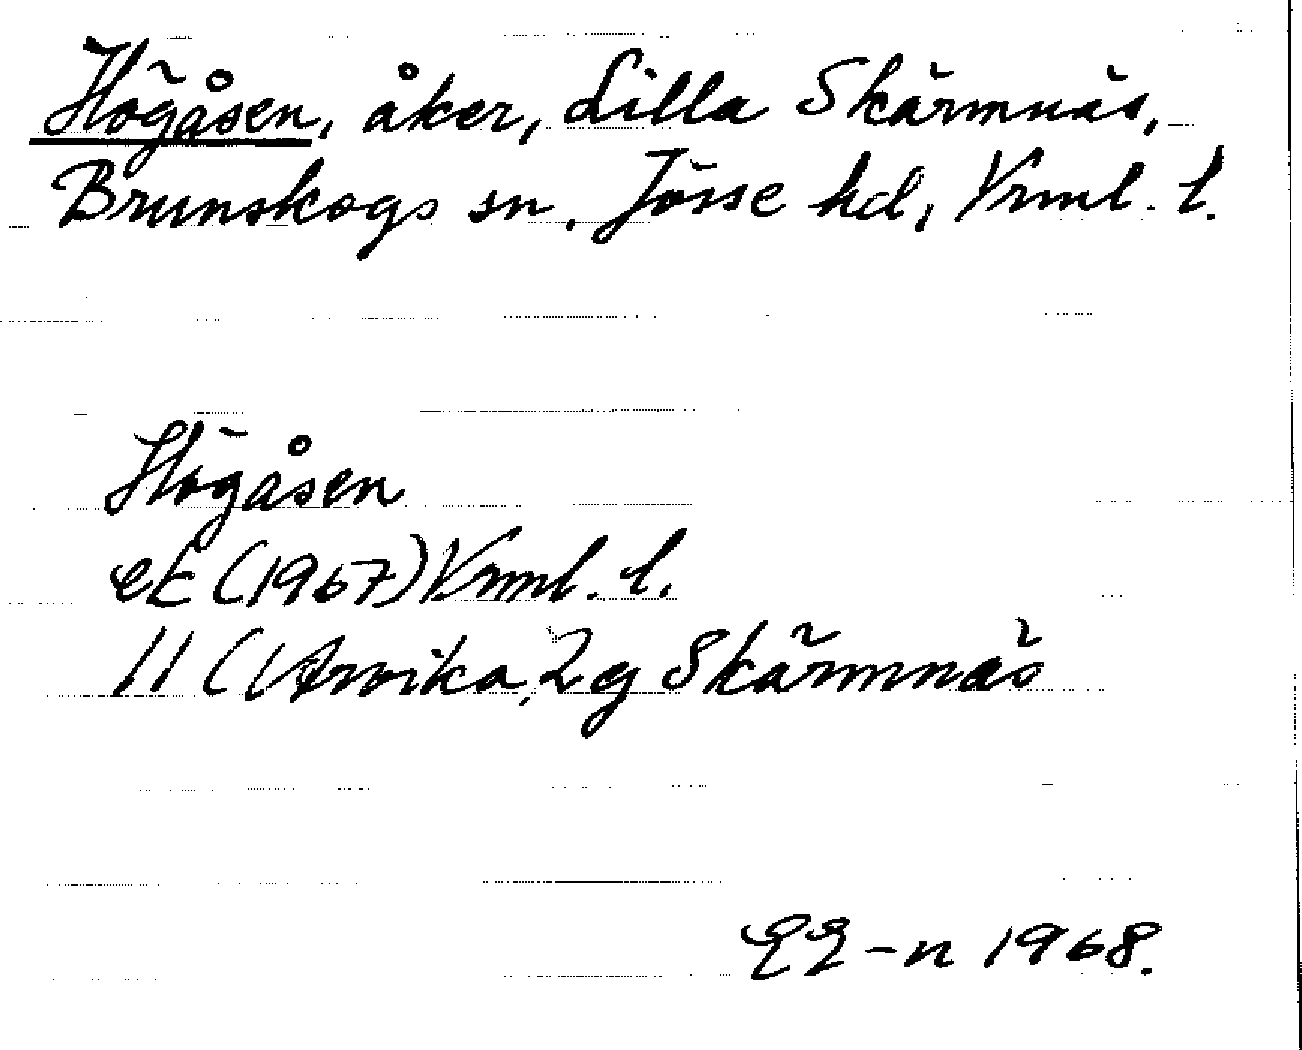 Högåsen, åker, Lilla Skärmnäs,
Brunskogs sn, Jösse hd, Vrml. l.
Högåsen
ek (1967) Vrml. l.
11 (Arvika, 2g Skärmnäs
EE-n 1968.